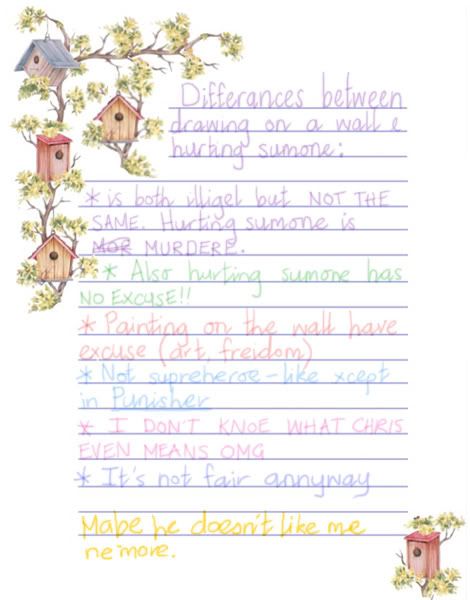 Differances between
drawing on a wall &
hurting sumone:
* is both illigel but NOT THE
SAME. Hurting sumone is
MURDERE.
* Also hurting sumone has
NO EXCUSE!!
* Painting on the wall have
excuse (art, freidom)
* Not supreheroe - like xcept
in Punisher
* I DON'T KNOE WHAT CHRIS
EVEN MEANS OMG
* It's not fair annyway
Mabe he doesn't like me
ne more.